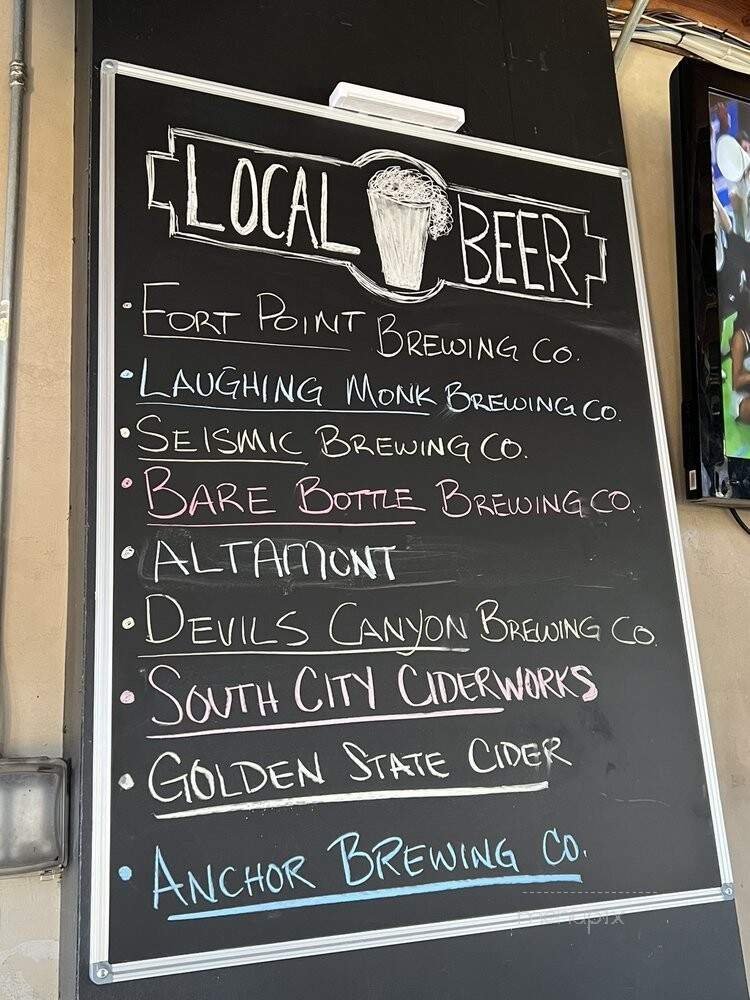 LOCAL BEER
• FORT POINT BREWING CO.
• LAUGHING MONK BREWING CO.
• SEISMIC BREWING CO.
• BARE BOTTLE BREWING CO.
• ALTAMONT
• DEVILS CANYON BREWING CO.
• SOUTH CITY CIDERWORKS
• GOLDEN STATE CIDER
• ANCHOR BREWING CO.
menupix